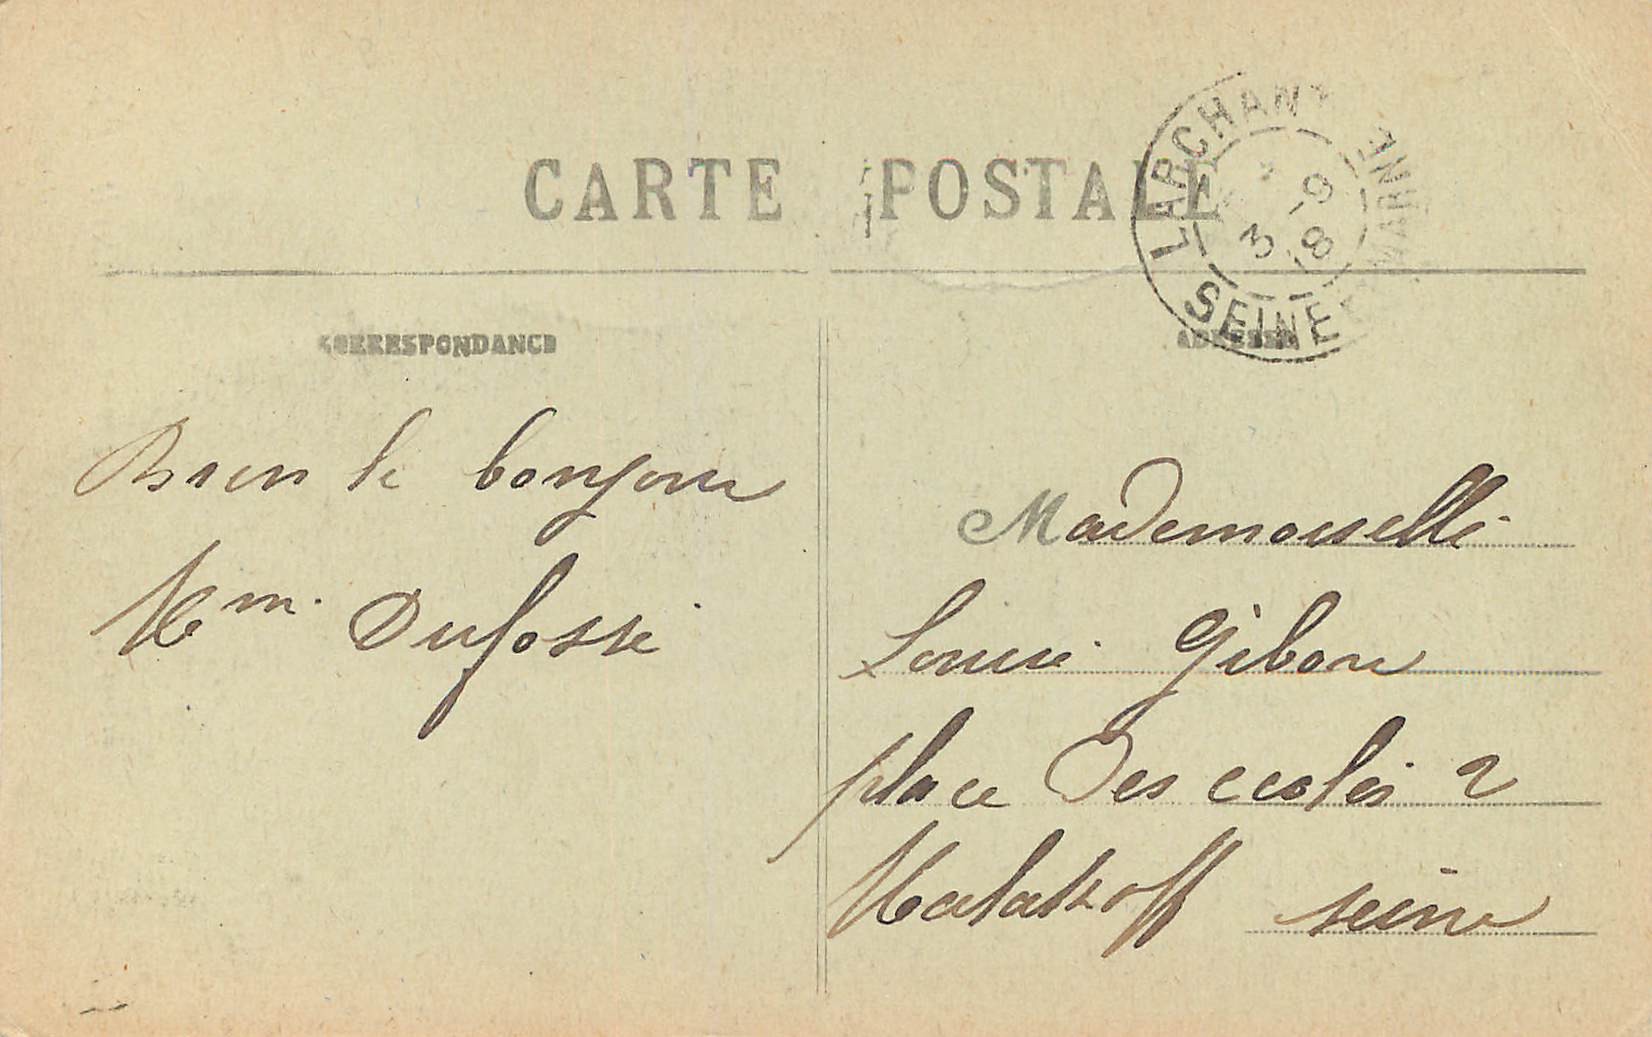 CARTE POSTALE
LARCHANT
SEINE & MARNE
3 -9
18
CORRESPONDANCE
ADRESSE
Bien le bonjour
Mme. Dufossé
Mademoiselle
Louise Gibon
place Des ecoles 2
Malakoff seine